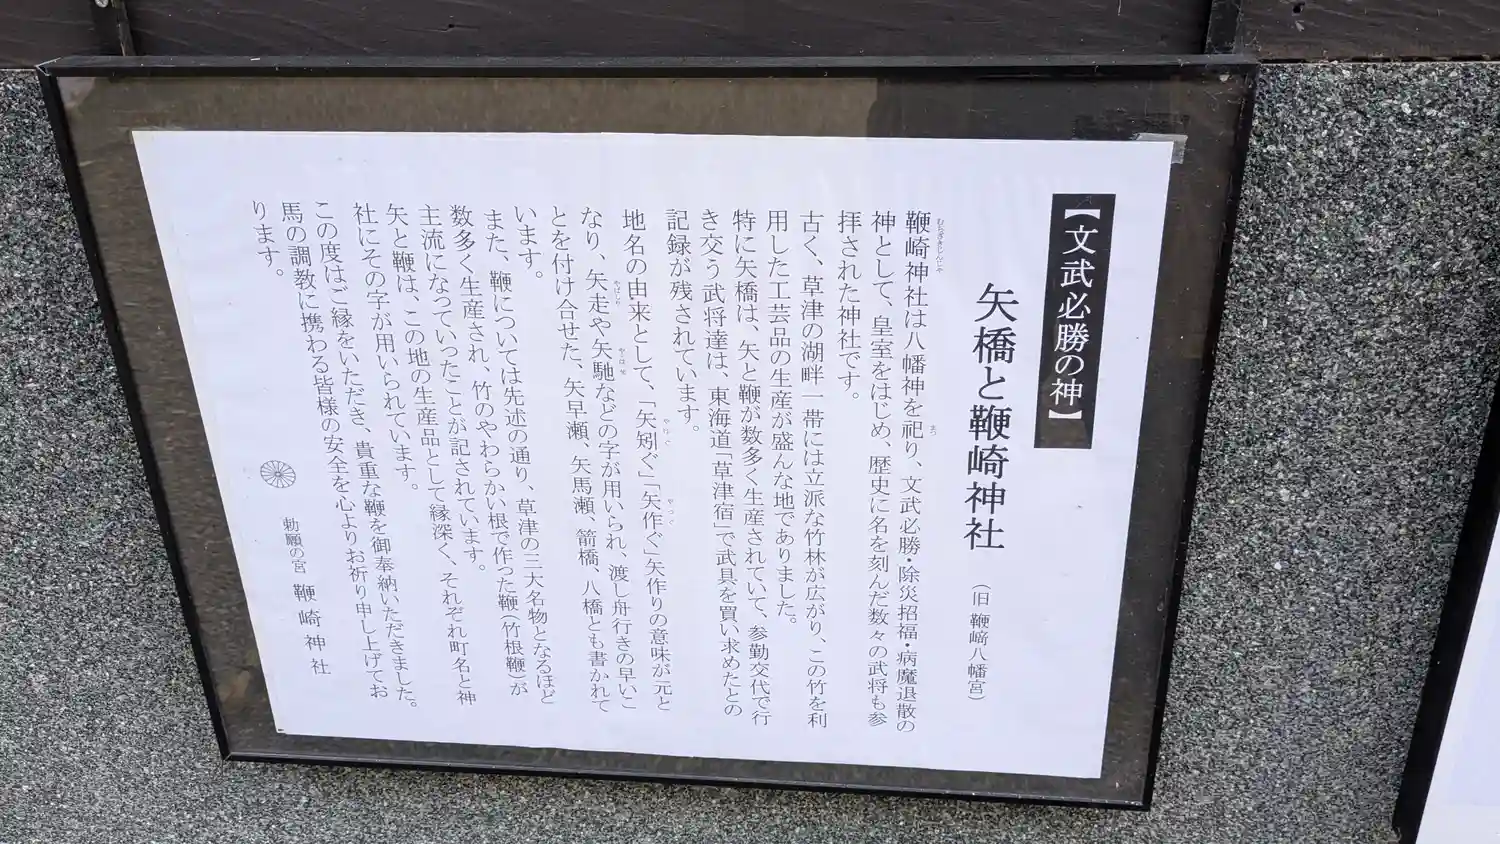 【文武必勝の神】
矢橋と鞭崎神社
（旧 鞭﨑八幡宮）
鞭崎神社は八幡神を祀り、文武必勝・除災招福・病魔退散の
神として、皇室をはじめ、歴史に名を刻んだ数々の武将も参
拝された神社です。
古く、草津の湖畔一帯には立派な竹林が広がり、この竹を利
用した工芸品の生産が盛んな地でありました。
特に矢橋は、矢と鞭が数多く生産されていて、参勤交代で行
き交う武将達は、東海道「草津宿」で武具を買い求めたとの
記録が残されています。
地名の由来として、「矢矧ぐ」「矢作ぐ」矢作りの意味が元と
なり、矢走や矢馳などの字が用いられ、渡し舟行きの早いこ
とを付け合せた、矢早瀬、矢馬瀬、箭橋、八橋とも書かれて
います。
また、鞭については先述の通り、草津の三大名物となるほど
数多く生産され、竹のやわらかい根で作った鞭（竹根鞭）が
主流になっていったことが記されています。
矢と鞭は、この地の生産品として縁深く、それぞれ町名と神
社にその字が用いられています。
この度はご縁をいただき、貴重な鞭を御奉納いただきました。
馬の調教に携わる皆様の安全を心よりお祈り申し上げてお
ります。
勅願の宮 鞭崎神社